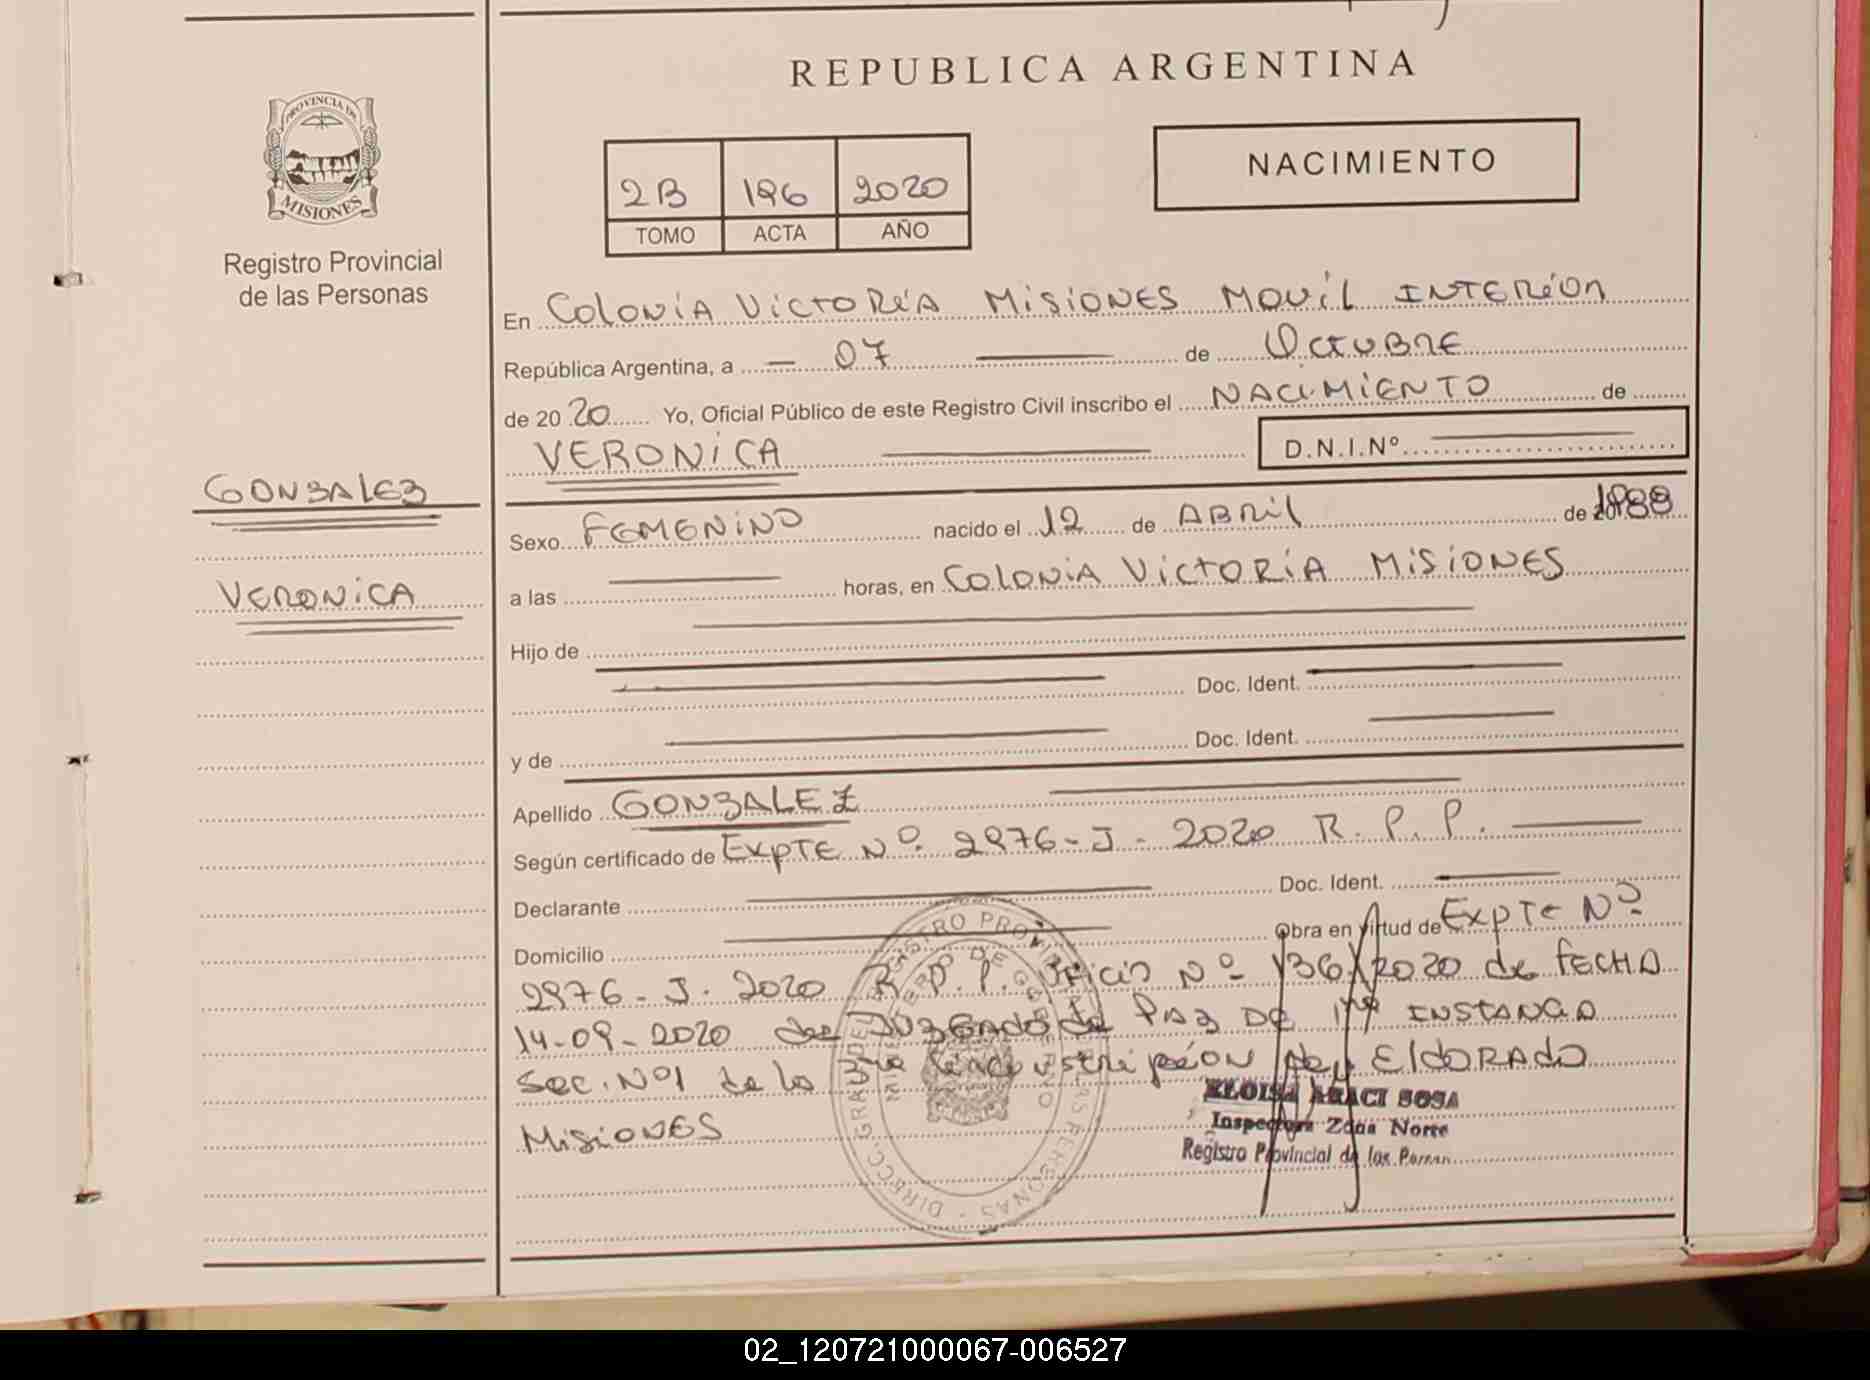 REPUBLICA ARGENTINA
PROVINCIA DE
MISIONES
Registro Provincial
de las Personas
NACIMIENTO
2B 196 2020
TOMO ACTA AÑO
En Colonia Victoria Misiones Movil Interior
República Argentina, a — 07 — de Octubre
de 2020 Yo, Oficial Público de este Registro Civil inscribo el NACIMIENTO de
VERONICA — D.N.I.Nº —
GONZALEZ
VERONICA
Sexo FEMENINO nacido el 12 de ABRIL de 1988
a las — horas, en COLONIA VICTORIA MISIONES
Hijo de —
— Doc. Ident. —
y de — Doc. Ident. —
Apellido GONZALEZ —
Según certificado de Expte Nº 2976-J-2020 R.P.P. —
Declarante — Doc. Ident. —
Domicilio — Obra en virtud de Expte Nº
2976-J-2020 R.P.P. Oficio Nº 136/2020 de FECHA
14-09-2020 del JUZGADO de PAZ DE 1ra INSTANCIA
Sec. Nº1 de la 3ra Circunscripción de ELDORADO
MISIONES
ELOISA ARACI SOSA
Inspectora Zona Norte
Registro Provincial de las Person
DIRECC. GRAL DEL REGISTRO PROVINCIAL DE LAS PERSONAS
MINISTERIO DE GOBIERNO
02_120721000067-006527